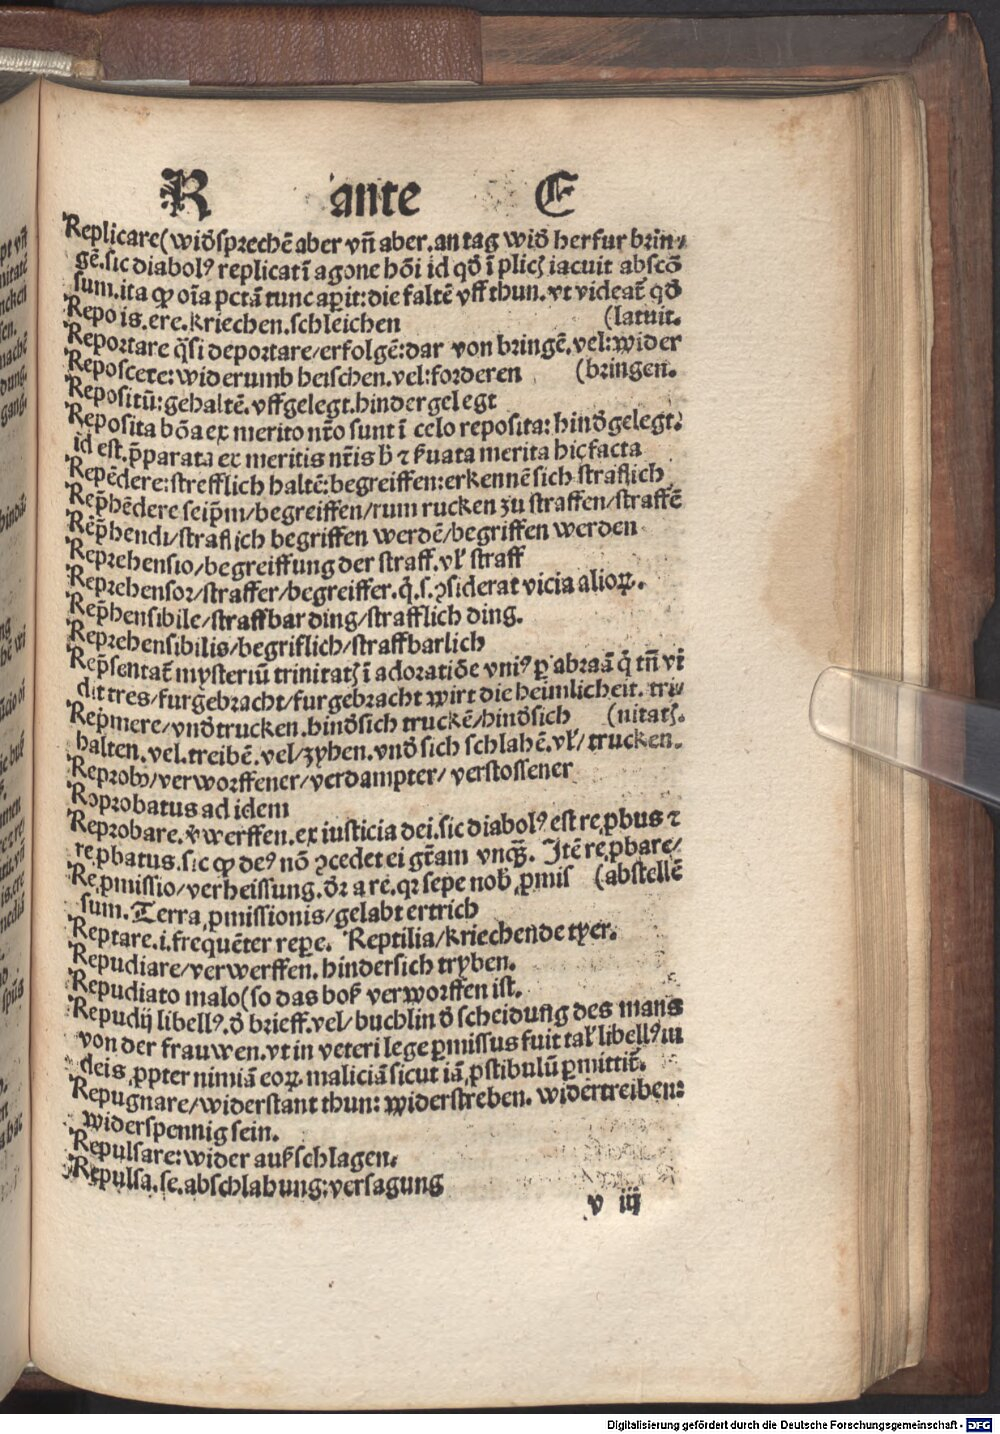 R ante E
Replicare(wid̕sprechē aber vñ aber.an tag wid̕ herfur brin⸗
gē.sic diabolꝰ replicat ī agone hōi id qd̕ ī plicꝫ iacuit absco̅
sum.ita ꝙ oīa pctā tunc aꝑit:die faltē vff thun.vt videat̄ qd̕
Repo is.ere.kriechen.schleichen (latuit.
Reportare q̄si deportare/erfolgē:dar von bringē.vel:wider
Reposcere:widerumb heischen.vel:forderen (bringen.
Repositū:gehaltē.vffgelegt.hindergelegt
Reposita bōa ex merito nr̄o sunt ī celo reposita:hind̕gelegt.
id est.p̄parata ex meritis nr̄is h̄ ⁊ ẜuata merita hic facta
Repēdere:strefflich haltē:begreiffen:erkennē sich straflich
Rep̄hēdere seip̄m/begreiffen/rum rucken zu straffen/straffē
Rep̄hendi/straflich begriffen werdē/begriffen werden
Reprehensio/begreiffung der straff.vł straff
Reprehensor/straffer/begreiffer.q̇.s.ꝯsiderat vicia alioꝝ.
Rep̄hensibile/straffbar ding/strafflich ding.
Reprehensibilis/begriflich/straffbarlich
Rep̄sentat̄ mysteriū trinitatꝫ ī adoratiōe vniꝰ ꝑ abraā q̇ tn̄ vi
dit tres/furgebracht/furgebracht wirt die heimlicheit.tri⸗
Rep̄mere/vnd̕trucken.hind̕sich truckē/hind̕sich (nitatꝫ.
halten.vel.treibē.vel/zyhen.vnd̕ sich schlahē.vł/trucken.
Reprobꝰ/verworffener/verdampter/verstossener
Roprobatus ad idem
Reprobare.v̕werffen.ex iusticia dei.sic diabolꝰ est reꝓbus ⁊
reꝓbatus.sic ꝙ deꝰ nō ꝯcedet ei gr̄am vnqꝫ. Itē reꝓbare/
Reꝓmissio/verheissung.dr̄ a re.qr sepe nob̕ ꝓmis (abstellē
sum.Terra ꝓmissionis/gelabt ertrich
Reptare.i.frequēter reꝑe. Reptilia/kriechende tyer.
Repudiare/verwerffen.hindersich tryben.
Repudiato malo(so das boß verworffen ist.
Repudij libellꝰ.d̕ brieff.vel/buchlin d̕ scheidung des mans
von der frauwen.vt in veteri lege ꝑmissus fuit tal̕ libellꝰ iu
deis ꝓpter nimiā eoꝝ.maliciā sicut iā ꝓstibulū ꝑmittit̄.
Repugnare/widerstant thun:widerstreben.widertreiben:
widerspennig sein.
Repulsare:wider außschlagen.
Repulsa.se.abschlahung:versagung
v iij
Digitalisierung gefördert durch die Deutsche Forschungsgemeinschaft - DFG